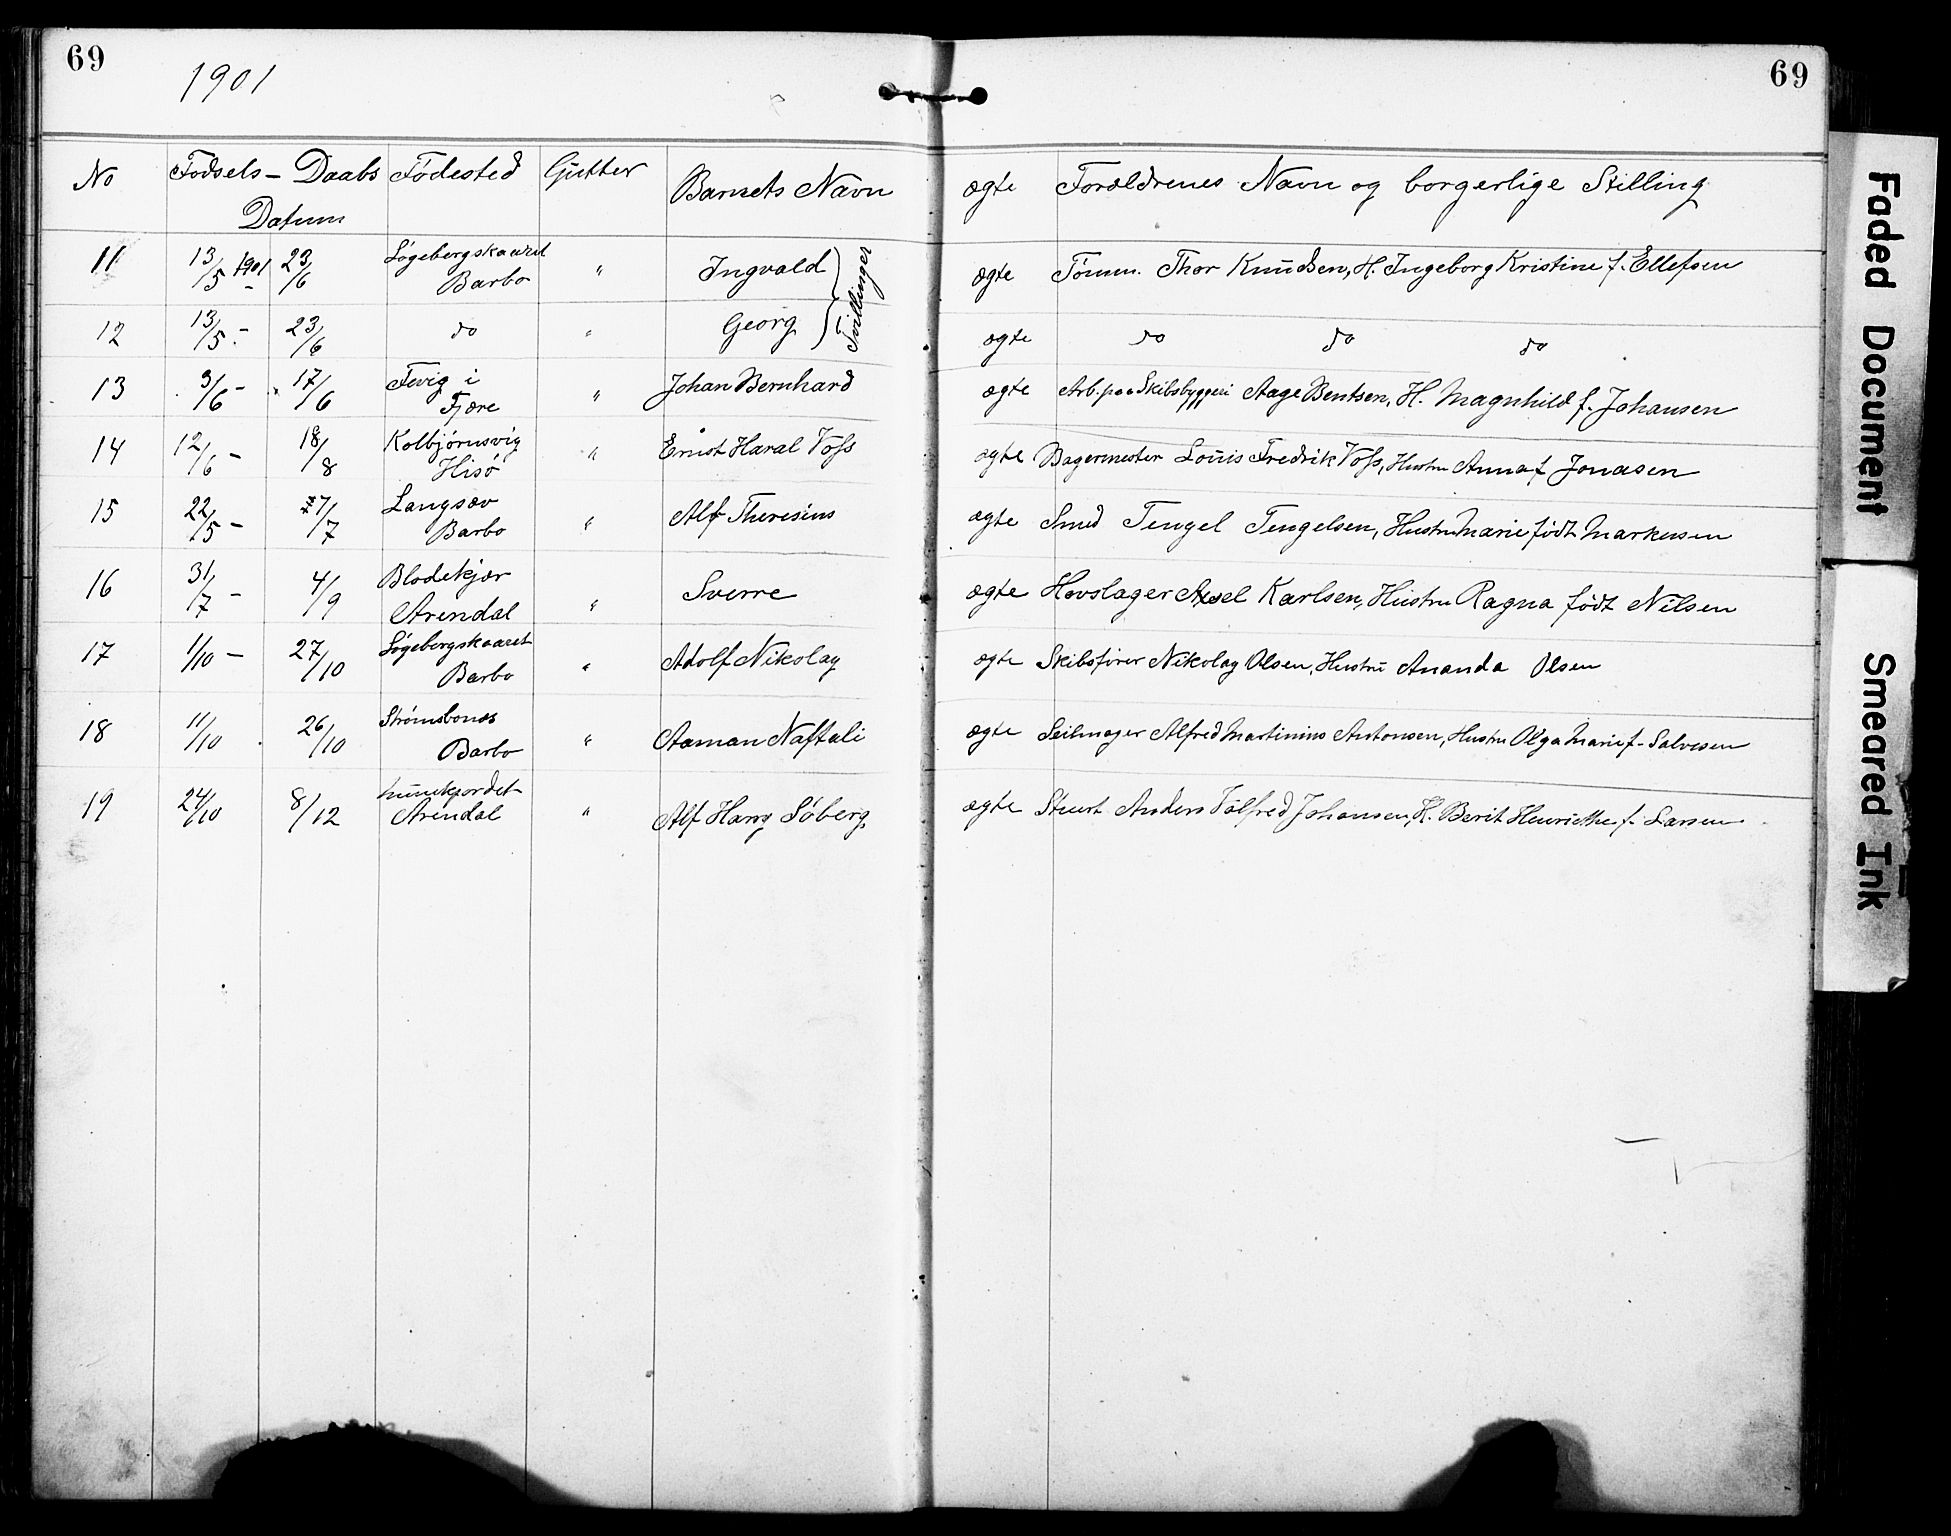 69
1901
69
No Fødsels- Daabs Fødested Gutter Barnets Navn ægte Forældrenes Navn og borgerlige Stilling
Datum
11 13/5 1901 23/6 Løgebergskaaret " Ingvald ægte Tømm. Thor Knudsen, H. Ingeborg Kristine f. Ellefsen
Barbo
Tvillinger
12 13/5 - 23/6 do " Georg ægte do do do
13 3/6 - 17/6 Fevig i " Johan Bernhard ægte Arb. paa Skibsbyggeri Aage Bentsen, H. Magnhild f. Johansen
Fjære
14 12/6 - 18/8 Kolbjørnsvig " Ernst Haral Voss ægte Bagermester Louis Fredrik Voss, Hustru Anna f Jonasen
Hisø
15 22/5 - 7/7 Langsæv " Alf Theresius ægte Smed Tengel Tengelsen, Hustru Marie født Markusen
Barbo
16 31/7 - 4/9 Blodekjær " Sverre ægte Hovslager Axel Karlsen, Hustru Ragna født Nilsen
Arendal
17 1/10 - 27/10 Løgebergskaaret " Adolf Nikolay ægte Skibsfører Nikolay Olsen, Hustru Ananda Olsen
Barbo
18 11/10 26/10 Strømsbonæs " Aaman Naftali ægte Seilmager Alfred Martinius Antonsen, Hustru Olga Marie f. Salvesen
Barbo
19 24/10 8/12 Arendal " Alf Harry Søberg ægte Stuert Anders Tolfred Johansen, H. Berit Henriethe f. Larsen
Faded Document
Smeared Ink